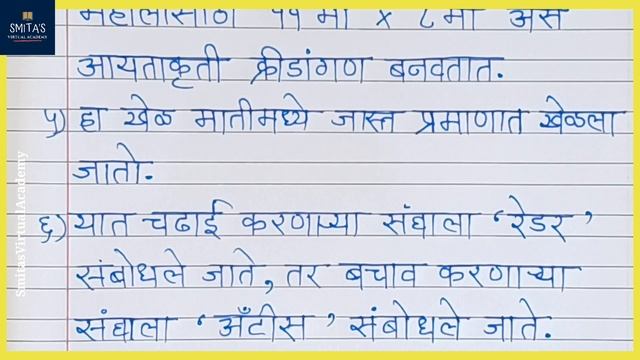 SMITA'S
VIRTUAL ACADEMY
महिलांसाठी ११ मी x ८ मी असे
आयताकृती क्रीडांगण बनवतात.
५) हा खेळ मातीमध्ये जास्त प्रमाणात खेळला
जातो.
६) यात चढाई करणाऱ्या संघाला ‘रेडर’
संबोधले जाते, तर बचाव करणाऱ्या
संघाला ‘अँटीस’ संबोधले जाते.
SmitasVirtualAcademy